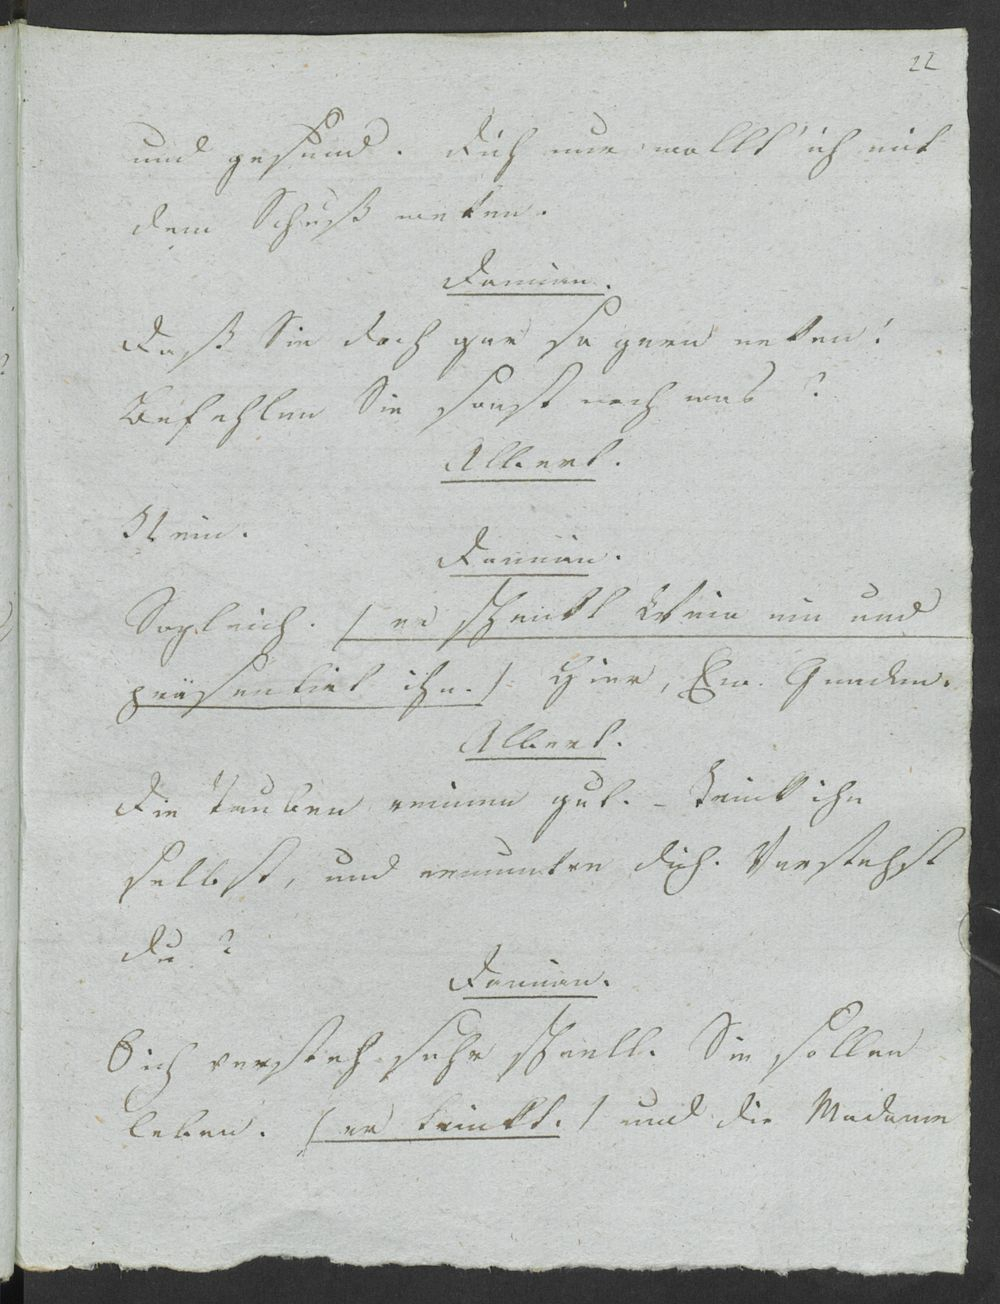 22
und gesund. Dich nur wollt' ich mit
dem Schuß weken.
Damian.
Daß Sie doch gar so gern weken!
Befehlen Sie sonst noch was?
Albert.
Wein.
Damian.
Sogleich. /er schenkt Wein ein und
präsentirt ihn./ Hier, Ew. Gnaden.
Albert.
Die Tauben meinen gut. – Trink ihn
selbst, und ermuntre dich. Verstehst
du?
Damian.
O ich versteh sehr schnell. Sie sollen
leben. /er trinkt./ und die Madame